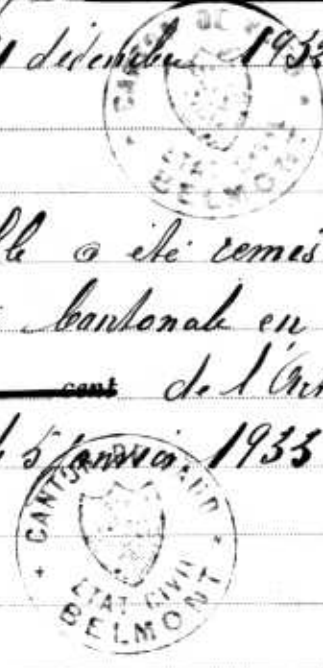 décembre 1932
CANTON DE VAUD
ETAT CIVIL
BELMONT
a été remis
Cantonale en
cent de l'
5 Janvier 1933
CANTON DE VAUD
ETAT CIVIL
BELMONT